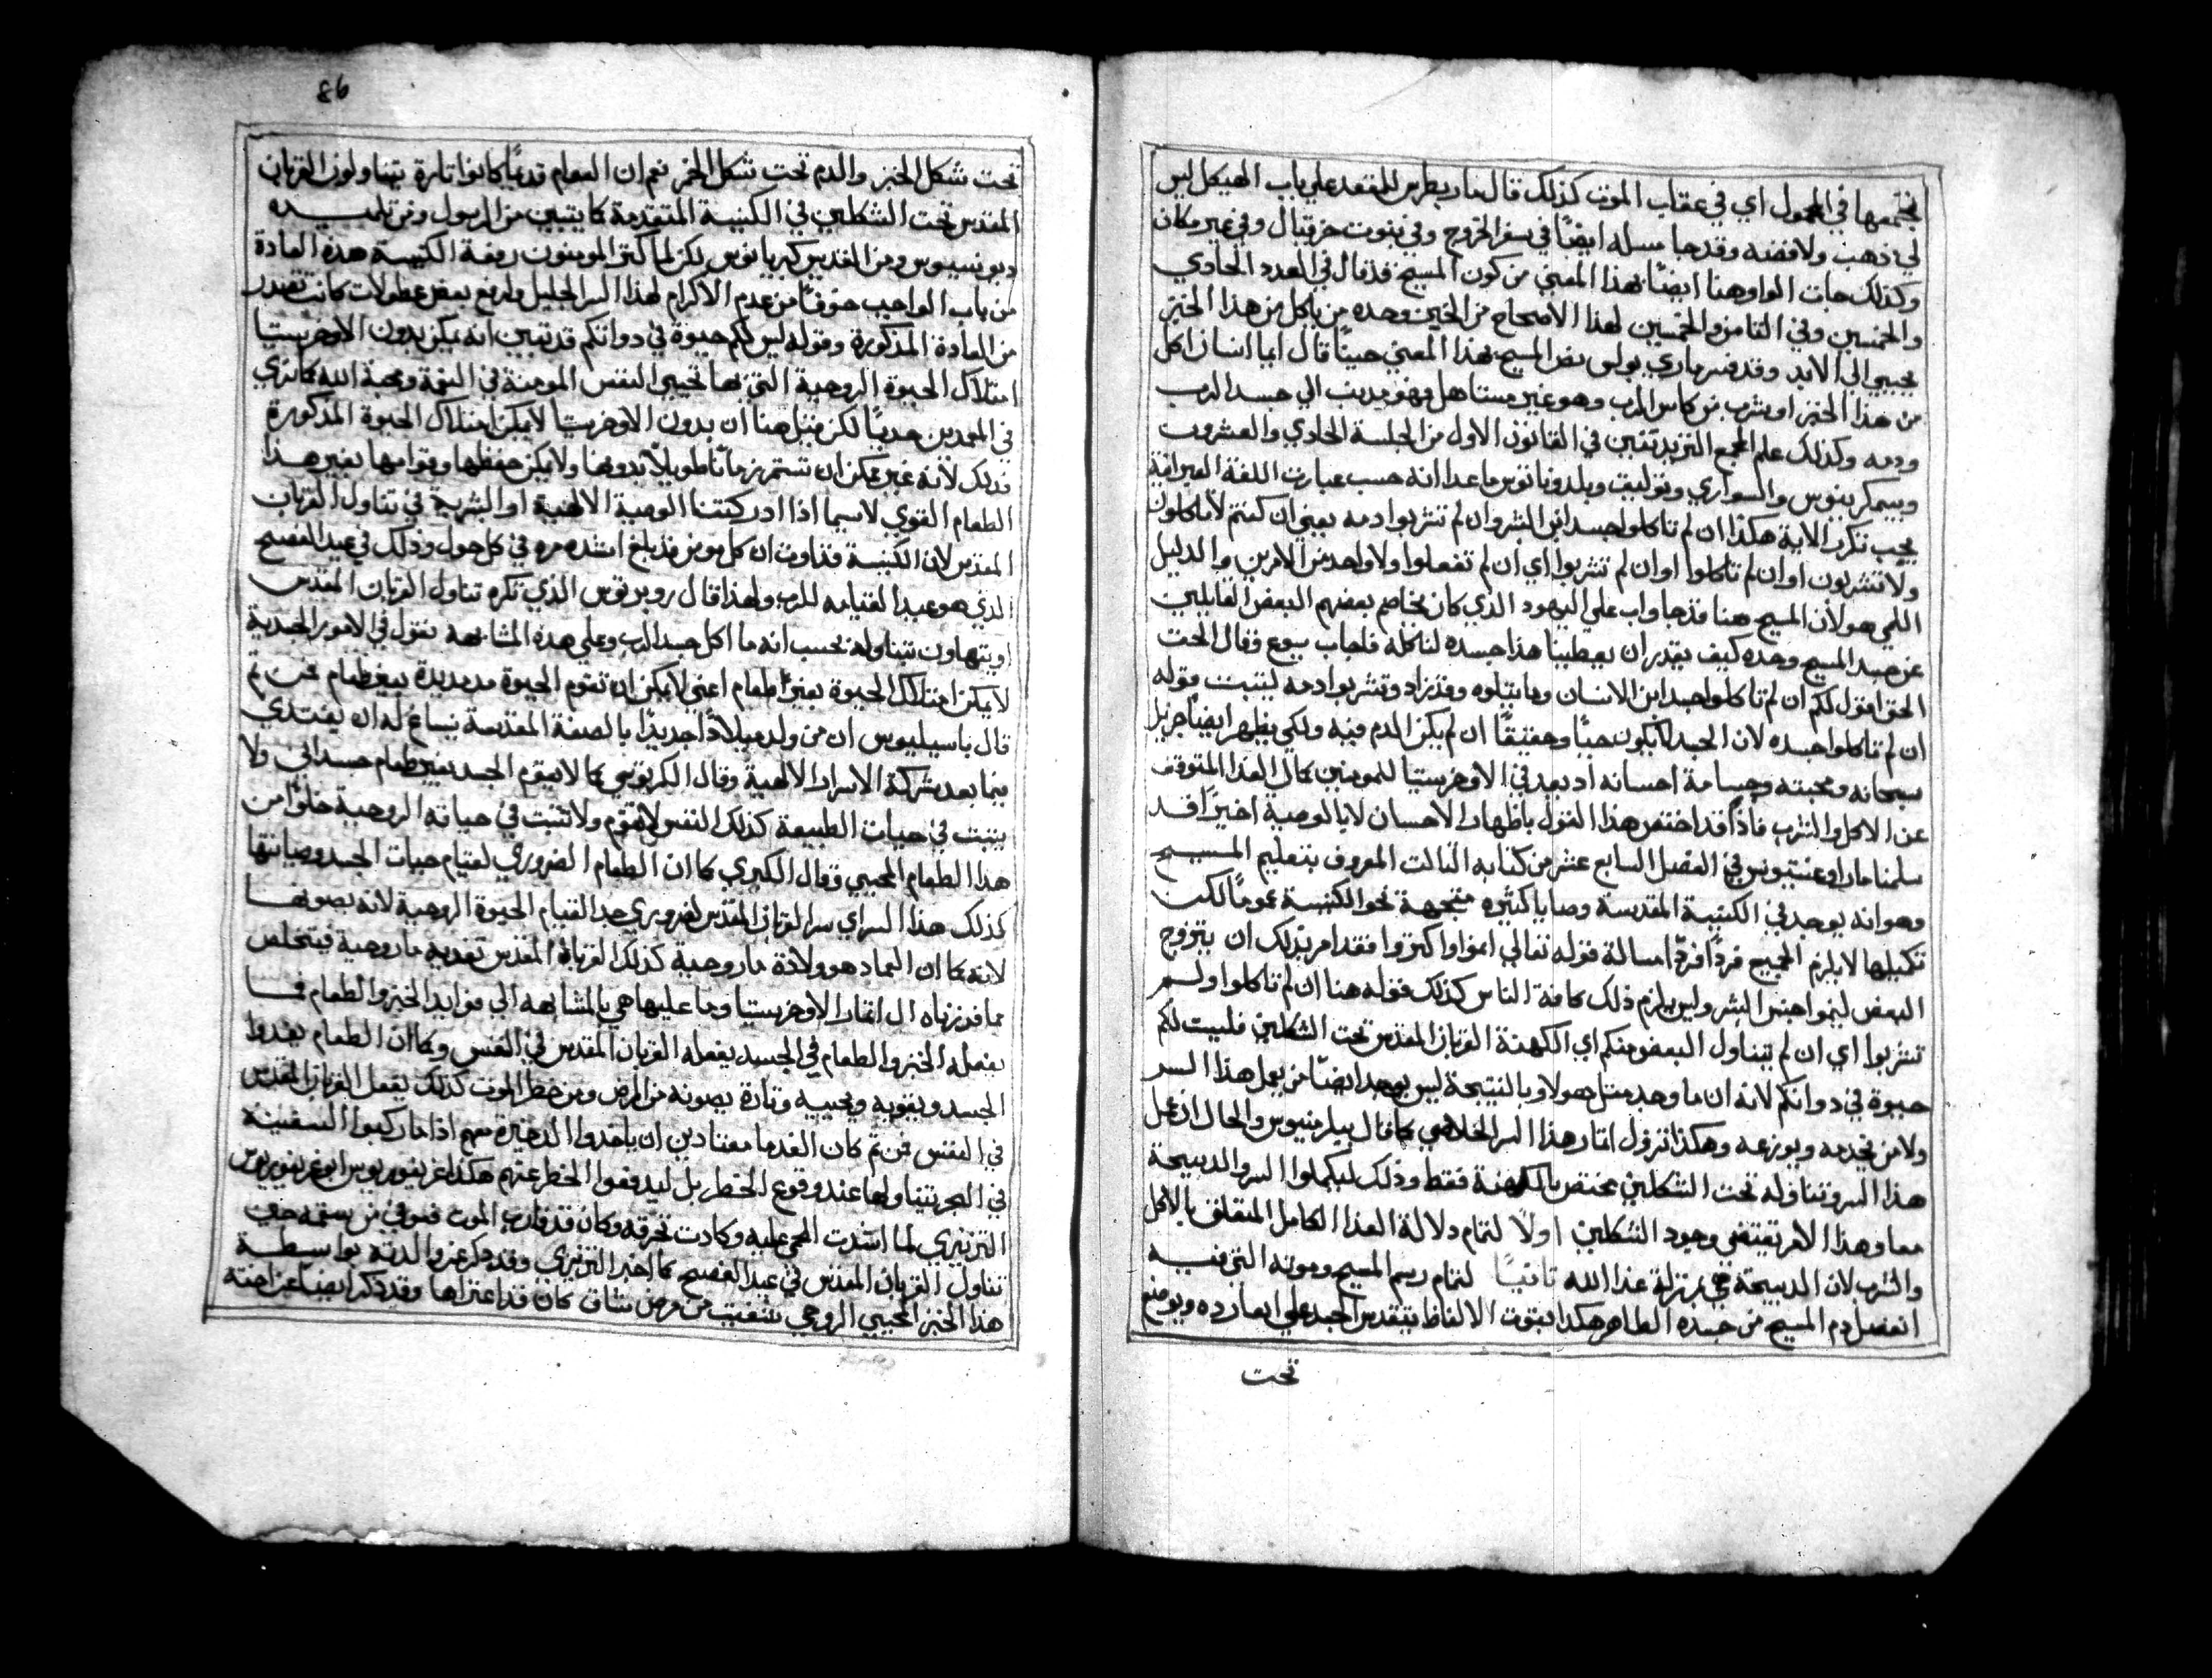 تجتمعها في المحمول اي في عقاب الموت كذلك قال مار بطرس للمقعد علي باب الهيكل ليس
لي ذهب ولا فضه وقد جا مسله ايضًا في سفر الخروج وفي نبوت حزقيال وفي غير مكان
وكذلك جات الواو هنا ايضًا بهذا المعني من كون المسيح قد قال في العدد الحادي
والخمسين وفي الثامن والخمسين لهذا الاصحاح من الخبز وحده من ياكل من هذا الخبز
يحيي الي الابد وقد فسر ماري بولس نص المسيح بهذا المعني حينًا قال ايما انسان اكل
من هذا الخبز او شرب من كاس الرب وهو غير مستاهل فهو مذنب الي جسد الرب
ودمه وكذلك علم المجمع التريدنتيني في القانون الاول من الجلسة الحادي والعشرون
وبيسمكرينوس والسواري وبلدوناتوس ما عدا انه حسب عبارت اللغة العبرانية
يجب تكرر الاية هكذا ان لم تاكلوا جسد ابن البشر وان لم تشربوا دمه يعني ان كنتم لا تاكلون
ولا تشربون او ان لم تاكلوا او ان لم تشربوا اي ان لم تفعلوا ولا واحد من الامرين والدليل
اللمي هو لان المسيح هنا قد جاوب علي اليهود الذي كان يخاصم بعضهم البعض القايلين
عن جسد المسيح وحده كيف يقدر ان يعطينا هذا جسده لناكله فاجاب يسوع وقال الحق
الحق اقول لكم ان لم تاكلوا جسد ابن الانسان وما يتلوه وقد زاد وتشربوا دمه ليثبت قوله
ان لم تاكلوا جسده لان الجسد لا يكون حيًا وحقيقًا ان لم يكن الدم فيه ولكي يظهر ايضًا جزيل
سبحانه ومحبته وجسامة احسانه اذ يعد في الاوخرستيا للمومنين كمال الغذا المتوقف
عن الاكل والشرب فاذًا قد اختص هذا القول باظهار الاحسان لا بالوصية اخيرًا قد
سلمنا مار اوغستينوس في الفصل السابع عشر من كتابه الثالث المعروف بتعليم المسيح
وهو انه يوجد في الكنيسة المقدسة وصايا كثيره متجهة نحو الكنيسة عمومًا لكن
تكميلها لا يلزم الجميع فردًا فردًا مسالة قوله تعالي انموا واكثروا فقد امر بذلك ان يتزوج
البعض لينموا جنس البشر وليس يلزم ذلك كافة الناس كذلك قوله هنا ان لم تاكلوا ولم
تشربوا اي ان لم يتناول البعض منكم اي الكهنة القربان المقدس تحت الشكلين فليست لكم
حيوة في ذواتكم لانه ان ما وجد مثل هولا وبالنتيجة ليس يوجد ايضًا من يعمل هذا السر
ولا من يخدمه ويوزعه وهكذا تزول اثمار هذا السر الخلاصي كما قال بيلرمنيوس والحال ان عمل
هذا السر وتناوله تحت الشكلين مختص بالكهنة فقط وذلك ليكملوا السر والدبيحة
معا وهذا الامر يقتضي وجود الشكلين اولًا لتمام دلالة الغذا الكامل المتعلق بالاكل
والشرب لان الدبيحة هي بمنزلة غذا الله ثانيًا لتمام رسم المسيح وموته التي فيه
انفصل دم المسيح من جسده الطاهر هكذا بقوت الالفاظ يتقدس الجسد علي انفراده ويوضع
تحت
86
تحت شكل الخبز والدم تحت شكل الخمر نعم ان العوام قديمًا كانوا تارة يتناولون القربان
المقدس تحت الشكلين في الكنيسة المتقدمة كما يتبين من الرسول ومن تلميده
ديونيسيوس ومن القديس كبريانوس لكن لما كثر المومنون رفضة الكنيسة هذه العادة
من باب الواجب خوفًا من عدم الاكرام لهذا السر الجليل ولرفع بعض عطولات كانت تصدر
من العادة المذكورة وقوله ليس لكم حيوة في ذواتكم قد تبين انه يمكن بدون الاوخرستيا
امتلاك الحيوة الروحية التي بها تحيي النفس المومنة في النعمة ومحبة الله كما نري
في المعمدين حديثًا لكن قيل هنا ان بدون الاوخرستيا لا يمكن امتلاك الحيوة المذكورة
فذلك لانه غير ممكن ان تستمر زمانًا طويلًا بدونها ولا يمكن حفظها وقوامها بغير هذا
الطعام القوي لا سيما اذا ادركتنا الوصية الالهية او البشرية في تناول القربان
المقدس لان الكنيسة قد اوت ان كل مومن قد بلغ اشده مره في كل حول وذلك في عيد الفصح
الذي هو عيد القيامه للرب ولهذا قال روبرتوس الذي تكره تناول القربان المقدس
او يتهاون بتناوله يحسب انه ما اكل جسد الرب وعلي هذه المشابهه نقول في الامور الجسدية
لا يمكن امتلاك الحيوة بغير طعام اعني لا يمكن ان تقوم الحيوة مده مديدة بغير طعام فمن ثم
قال باسيليوس ان من ولد ميلادًا جديدًا بالصبغة المقدسة يساغ له ان يغتدي
فيما بعد بشركة الاسرار الالهية وقال الكرتوسي كما لا يقوم الجسد بغير طعام جسداني ولا
يثبت في حيات الطبيعة كذلك النفس لا تقوم ولا تثبت في حياته الروحية خلوًا من
هذا الطعام المحيي وقال الكبري كما ان الطعام الضروري لقيام حيات الجسد وصيانتها
كذلك هذا السر اي سر القربان المقدس لضروري جدا لقيام الحيوة الروحية لانه يصونها
لانه كما ان العماد هو ولادة ما روحية كذلك القربان المقدس تغديه ما روحية فيتخلص
مما قررناه ال اثمار الاوخرستيا وما عليها هي بالمشابهه الي فوايد الخبز والطعام فما
يفعله الخبز والطعام في الجسد يفعله القربان المقدس في النفس وكما ان الطعام يغدوا
الجسد ويقويه ويحييه وتارة يصونه من المرض ومن خطر الموت كذلك يفعل القربان المقدس
في النفس فمن ثم كان القدما معتادين ان ياخدوا الدخيرة معهم اذا ما ركبوا السفينة
في البحر بتناولها عند وقوع الخطر بل ليدفعوا الخطر عنهم هكذا غريغوريوس ابو غريغوريوس
التزينزي لما اشدت الحمي عليه وكادت تحرقه وكان قد قارب الموت فعوفي من سقمه حين
تناول القربان المقدس في عيد الفصح كما اخبر التزينزي وقد دكر عن والدته بواسطة
هذا الخبز المحيي الروحي شفيت من مرض شاق كان قد اعتراها وقد دكر ايضًا عن اخته